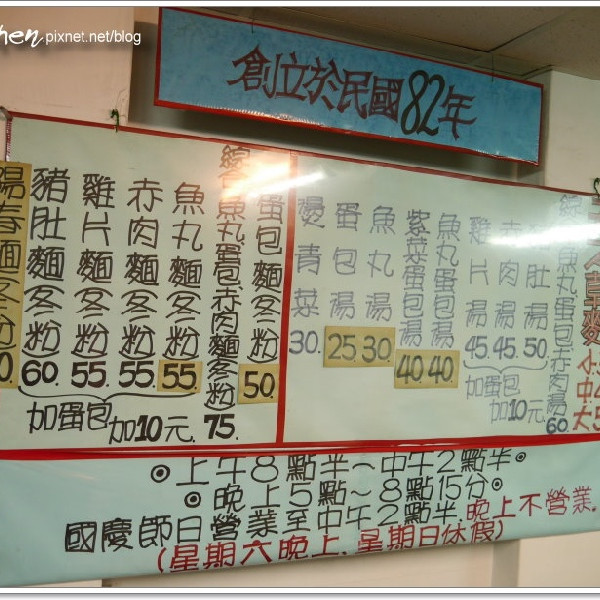 hen pixnet.net/blog
創立於民國82年
陽春麵(冬粉) 0
豬肚麵(冬粉) 60.
雞片麵(冬粉) 55.
赤肉麵(冬粉) 55.
魚丸麵(冬粉) 55.
綜合魚丸蛋包赤肉麵(冬粉) 75.
蛋包麵(冬粉) 50.
加蛋包加10元.
燙青菜 30.
蛋包湯 25.
魚丸湯 30.
紫菜蛋包湯 40.
魚丸蛋包湯 40.
雞片湯 45.
赤肉湯 45.
豬肚湯 50.
加蛋包加10元.
綜合魚丸蛋包赤肉湯 60.
小
中
大
⊙上午8點半~中午2點半⊙
⊙晚上5點~8點15分⊙
國慶節日營業至中午2點半晚上不營業.
(星期六晚上、星期日休假)